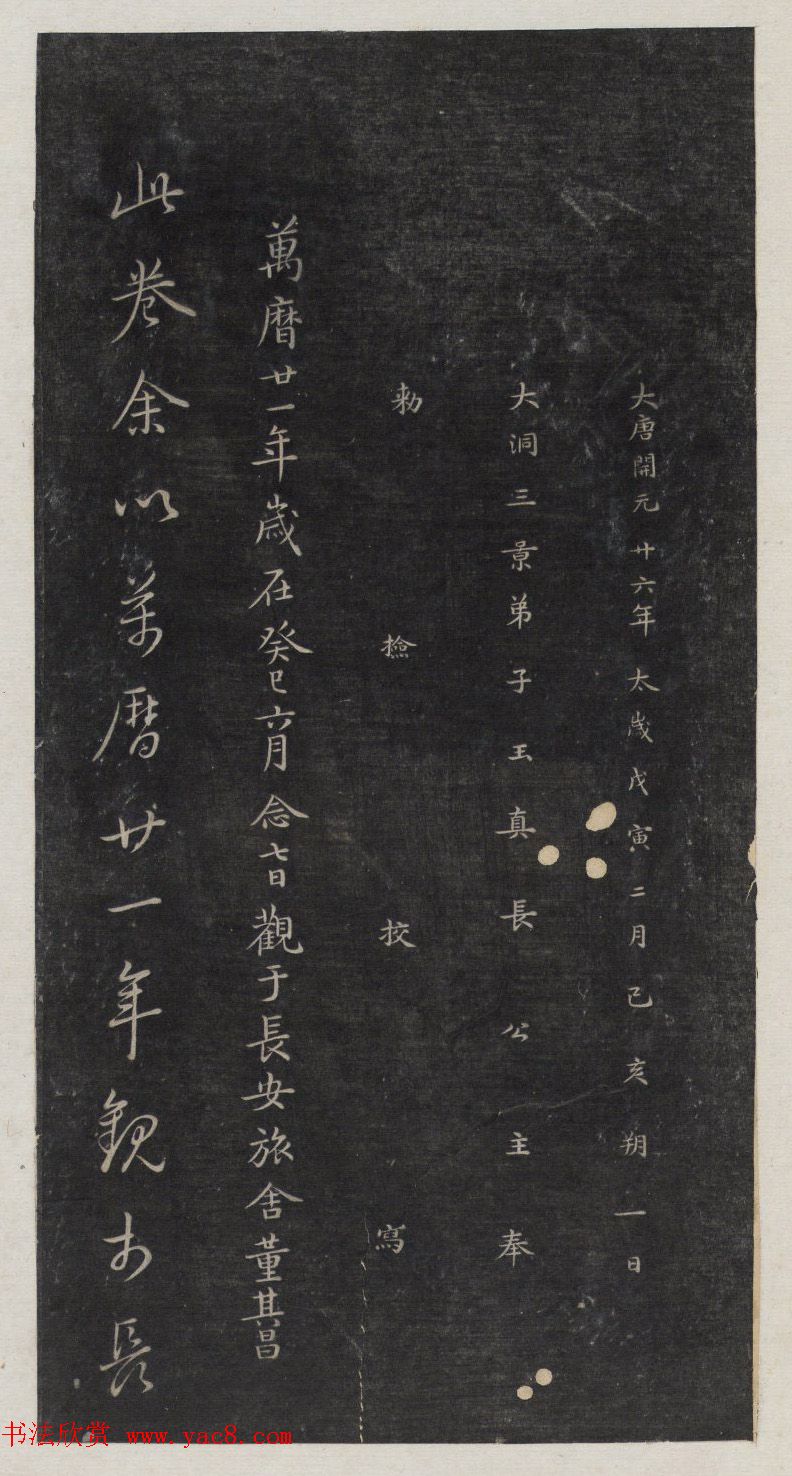 大唐開元廿六年太歲戊寅二月己亥朔一日
大洞三景弟子玉真長公主奉
勑檢校寫
萬曆廿一年歲在癸巳六月念七日觀于長安旅舍董其昌
此卷余以萬曆廿一年觀於長
书法欣赏 www.yac8.com